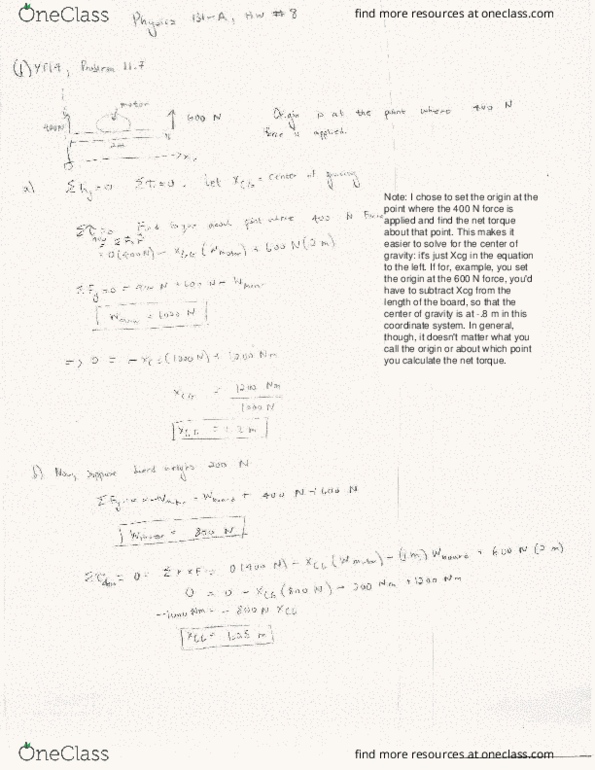 OneClass
find more resources at oneclass.com
Physics 131-A, HW # 8
(1) YF14, Problem 11.7
motor
400N
600 N
2m
Origin is at the point where 400 N
force is applied.
a) ΣFy=0 Στ=0. Let XCG = center of gravity
Find torque about point where 400 N Force
= 0(400N) - XCG (Wmotor) + 600 N (2 m)
ΣFy = 0 = 400 N + 600 N - Wmotor
Wmotor = 1000 N
=> 0 = -XCG (1000 N) + 1200 Nm
XCG = 1200 Nm
1000 N
XCG = 1.2 m
Note: I chose to set the origin at the
point where the 400 N force is
applied and find the net torque
about that point. This makes it
easier to solve for the center of
gravity: it's just Xcg in the equation
to the left. If for, example, you set
the origin at the 600 N force, you'd
have to subtract Xcg from the
length of the board, so that the
center of gravity is at -.8 m in this
coordinate system. In general,
though, it doesn't matter what you
call the origin or about which point
you calculate the net torque.
b) Now, suppose board weighs 200 N
Wboard + 400 N + 600 N
Wmotor = 800 N
= 0 = Σ r x F = 0(400 N) - XCG (Wmotor) - (1m) Wboard + 600 N (2 m)
0 = 0 - XCG (800 N) - 200 Nm + 1200 Nm
-1000 Nm = - 800 N XCG
XCG = 1.25 m
OneClass
find more resources at oneclass.com